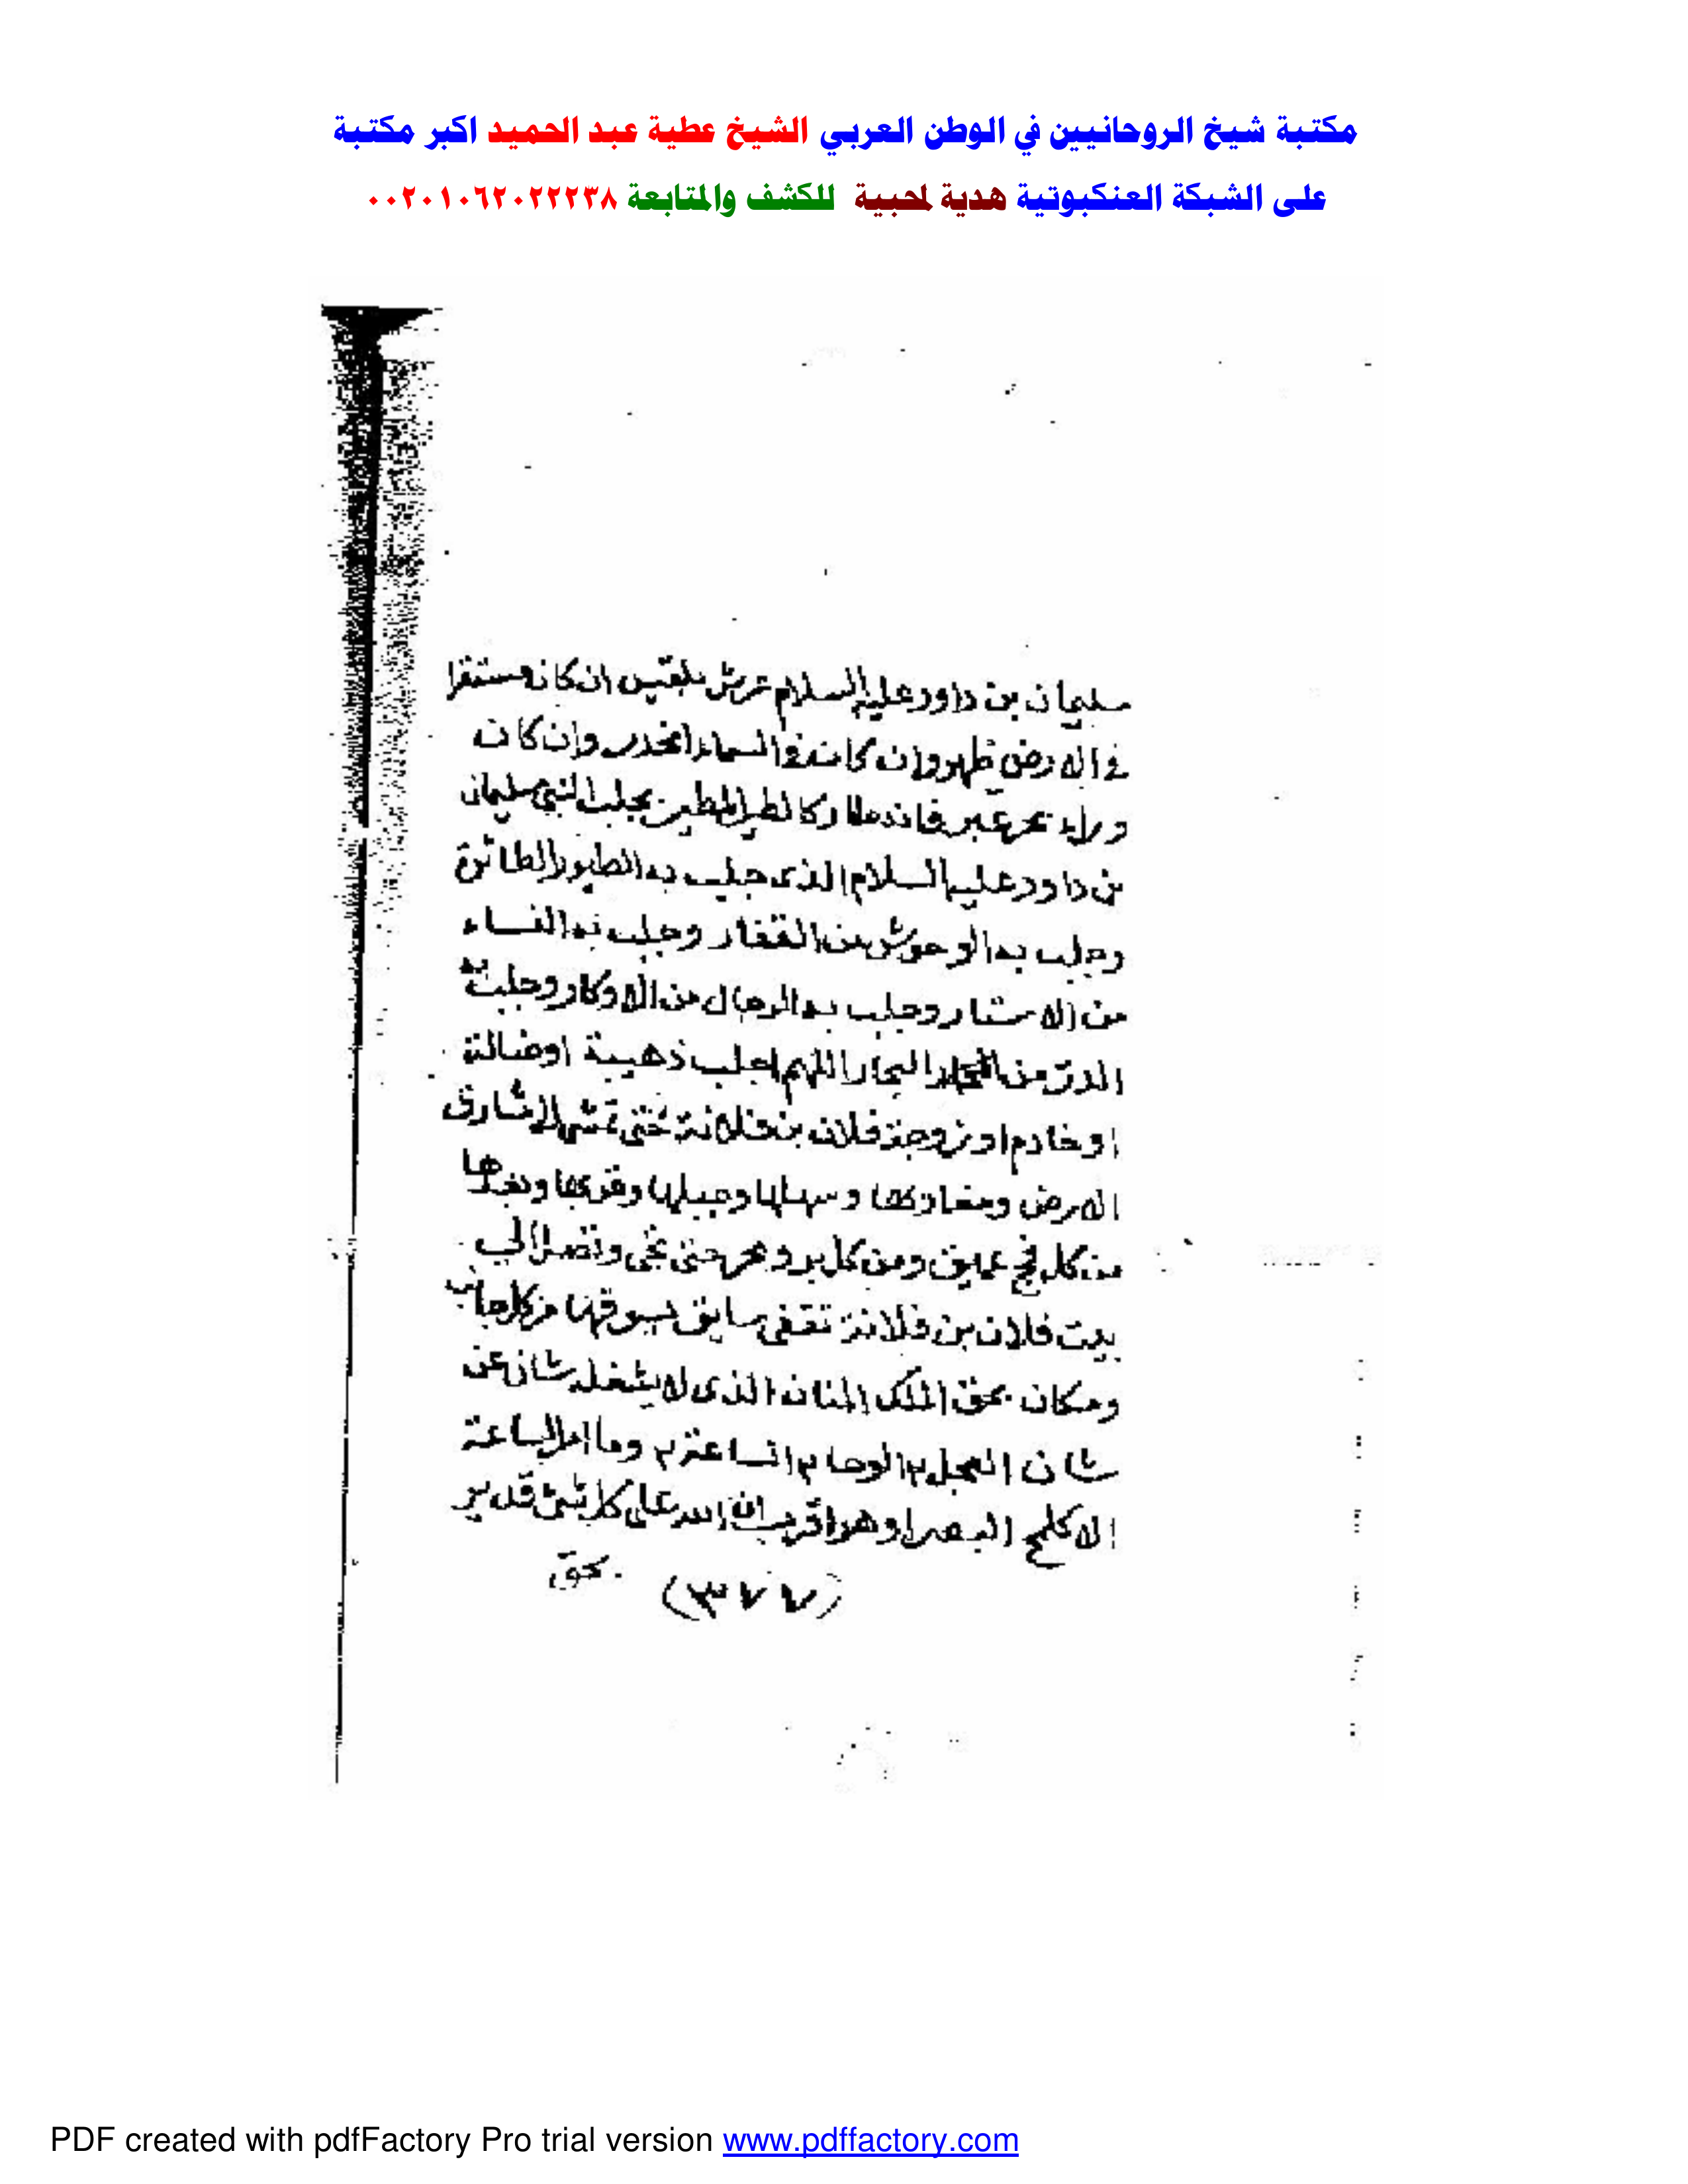 مكتبة شيخ الروحانيين في الوطن العربي الشيخ عطية عبد الحميد اكبر مكتبة
على الشبكة العنكبوتية هدية لمحبية للكشف والمتابعة ٠٠٢٠١٠٦٢٠٢٢٢٣٨
سليمان بن داود عليه السلام عرش بلقيس ان كان مستقرا
في الارض ظهر وان كانت في السماء انحدر وان كانت
وراء بحر عبر فانه طار كالطير المطير بجلب النبي سليمان
بن داود عليه السلام الذى جلب به الطيور الطائرة
وجلب به الوحوش من القفار وجلب به النساء
من الاستار وجلب به الرجال من الاوكار وجلب به
الدر من البحار اللهم اجلب ذهيبة اوضالة
او خادم او زوجة فلان بن فلانة حتى تمشى الا شارق
الارض ومغاربها وسهلها وجبلها وقربها وبعدها
من كل فج عميق ومن كل بر وبحر حتى تجى وتصل الي
بيت فلان بن فلانة تقفى سايق يسوقها من كل جانب
ومكان بحق الملك المنان الذى لا يشغله شان عن
شان العجل ٢ الوحا ٢ الساعة ٢ وما امر الساعة
الا كلمح البصر او هو اقرب ان الله على كل شئ قدير
(٣٧٧) بحق
PDF created with pdfFactory Pro trial version www.pdffactory.com